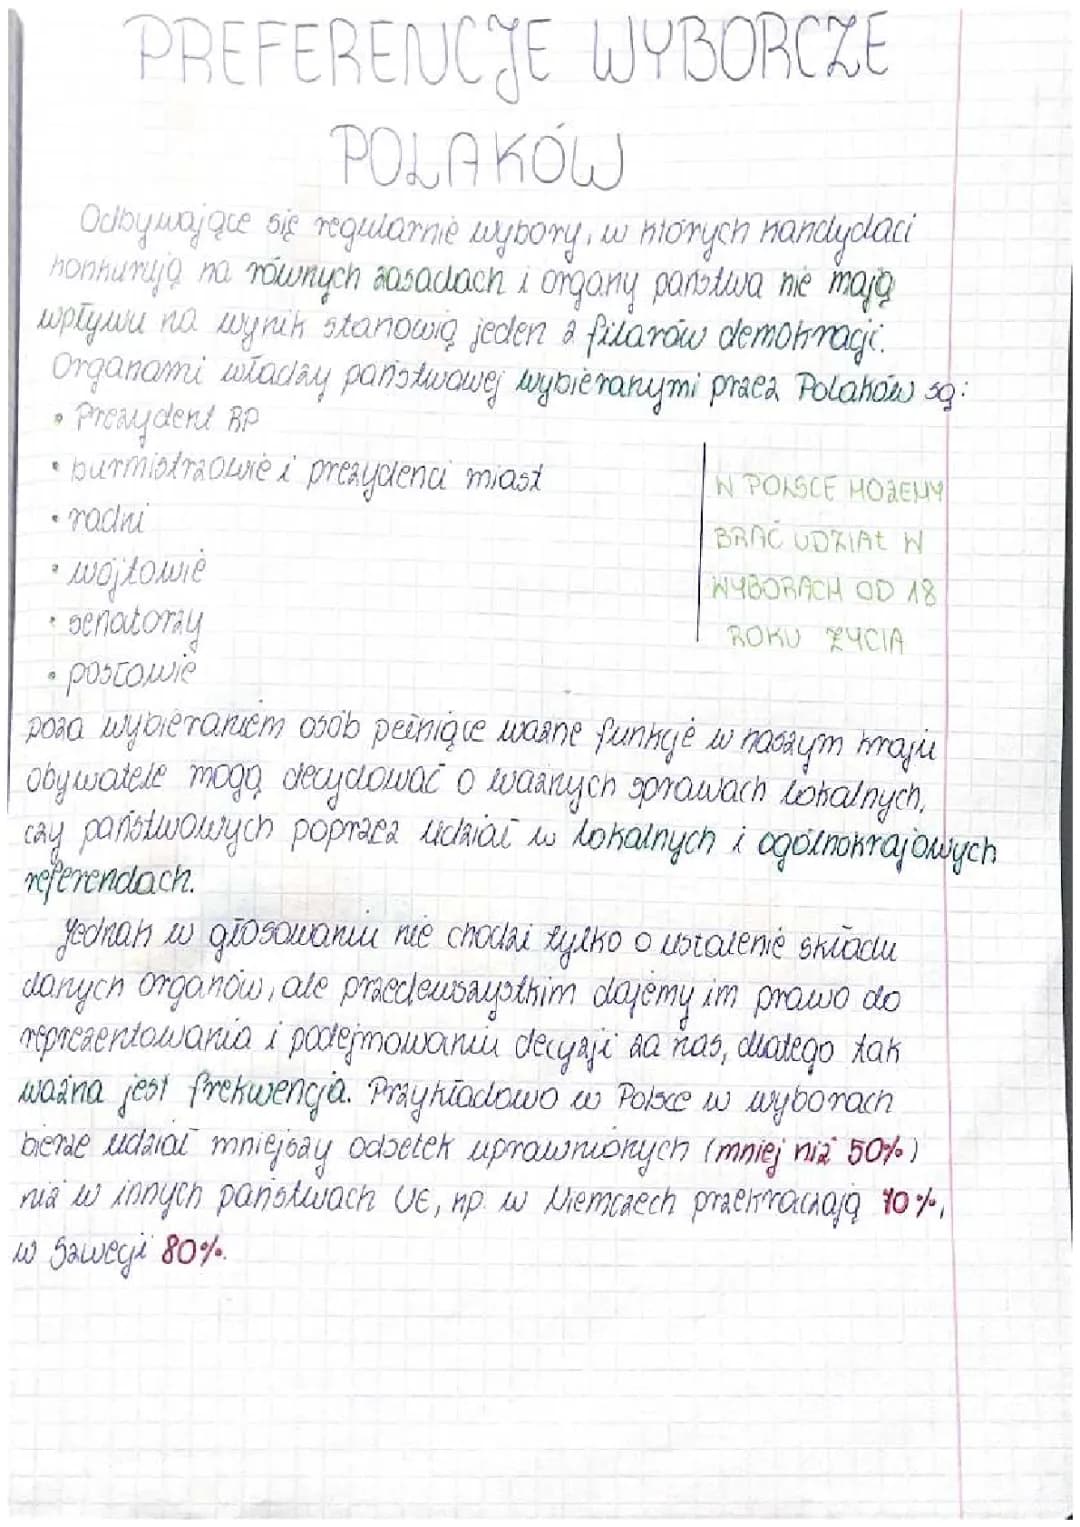 PREFERENCJE WYBORCZE
POLAKÓW
Odbywające się regularnie wybory, w których kandydaci
konkurują na równych zasadach i organy państwa nie mają
wpływu na wynik stanowią jeden z filarów demokracji.
Organami władzy państwowej wybieranymi przez Polaków są:
• Prezydent RP
• burmistrzowie i prezydenci miast
• radni
• wójtowie
• senatorzy
• posłowie
W POLSCE MOŻEMY
BRAĆ UDZIAŁ W
WYBORACH OD 18
ROKU ŻYCIA
poza wybieraniem osób pełniące ważne funkcje w naszym kraju
obywatele mogą decydować o ważnych sprawach lokalnych,
czy państwowych poprzez udział w lokalnych i ogólnokrajowych
referendach.
Jednak w głosowaniu nie chodzi tylko o ustalenie składu
danych organów, ale przedewszystkim dajemy im prawo do
reprezentowania i podejmowaniu decyzji za nas, dlatego tak
ważna jest frekwencja. Przykładowo w Polsce w wyborach
bierze udział mniejszy odsetek uprawnionych (mniej niż 50%)
niż w innych państwach UE, np. w Niemczech przekraczają 70%,
w Szwecji 80%.